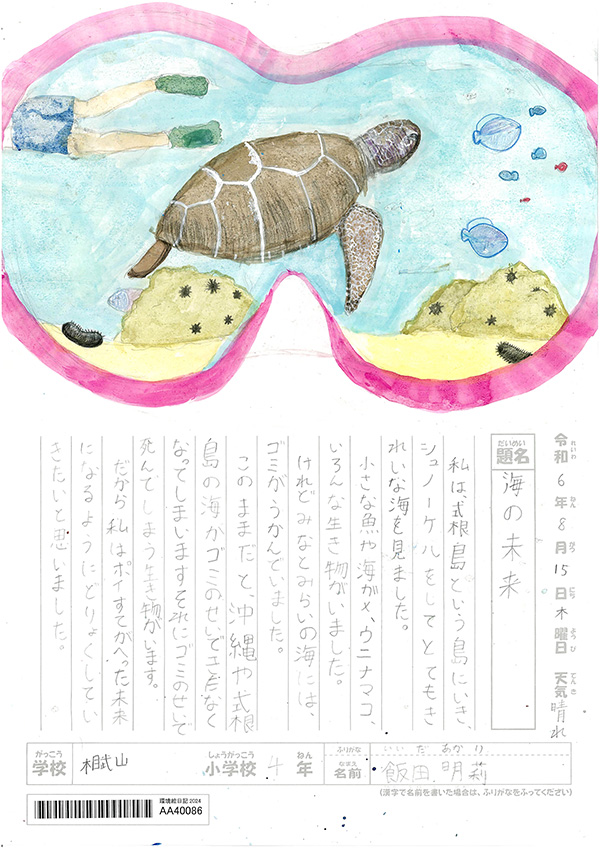 令和6年8月15日木曜日 天気晴れ
れいわ ねん がつ にち ようび てんき
だいめい
題名 海の未来
私は、式根島という島にいき、
シュノーケルをしてとてもき
れいな海を見ました。
小さな魚や海がメ、ウニナマコ、
いろんな生き物がいました。
けれどみなとみらいの海には、
ゴミがうかんでいました。
このままだと、沖縄や式根
島の海がゴミのせいできたなく
なってしまいますそれにゴミのせいで
死んでしまう生き物がいます。
だから私はポイすてがへった未来
になるようにどりょくしてい
きたいと思いました。
がっこう しょうがっこう ねん ふりがな いいだ あかり
学校 相武山 小学校 4 年 なまえ 名前 飯田 明莉
(漢字で名前を書いた場合は、ふりがなをふってください)
環境絵日記 2024
AA40086